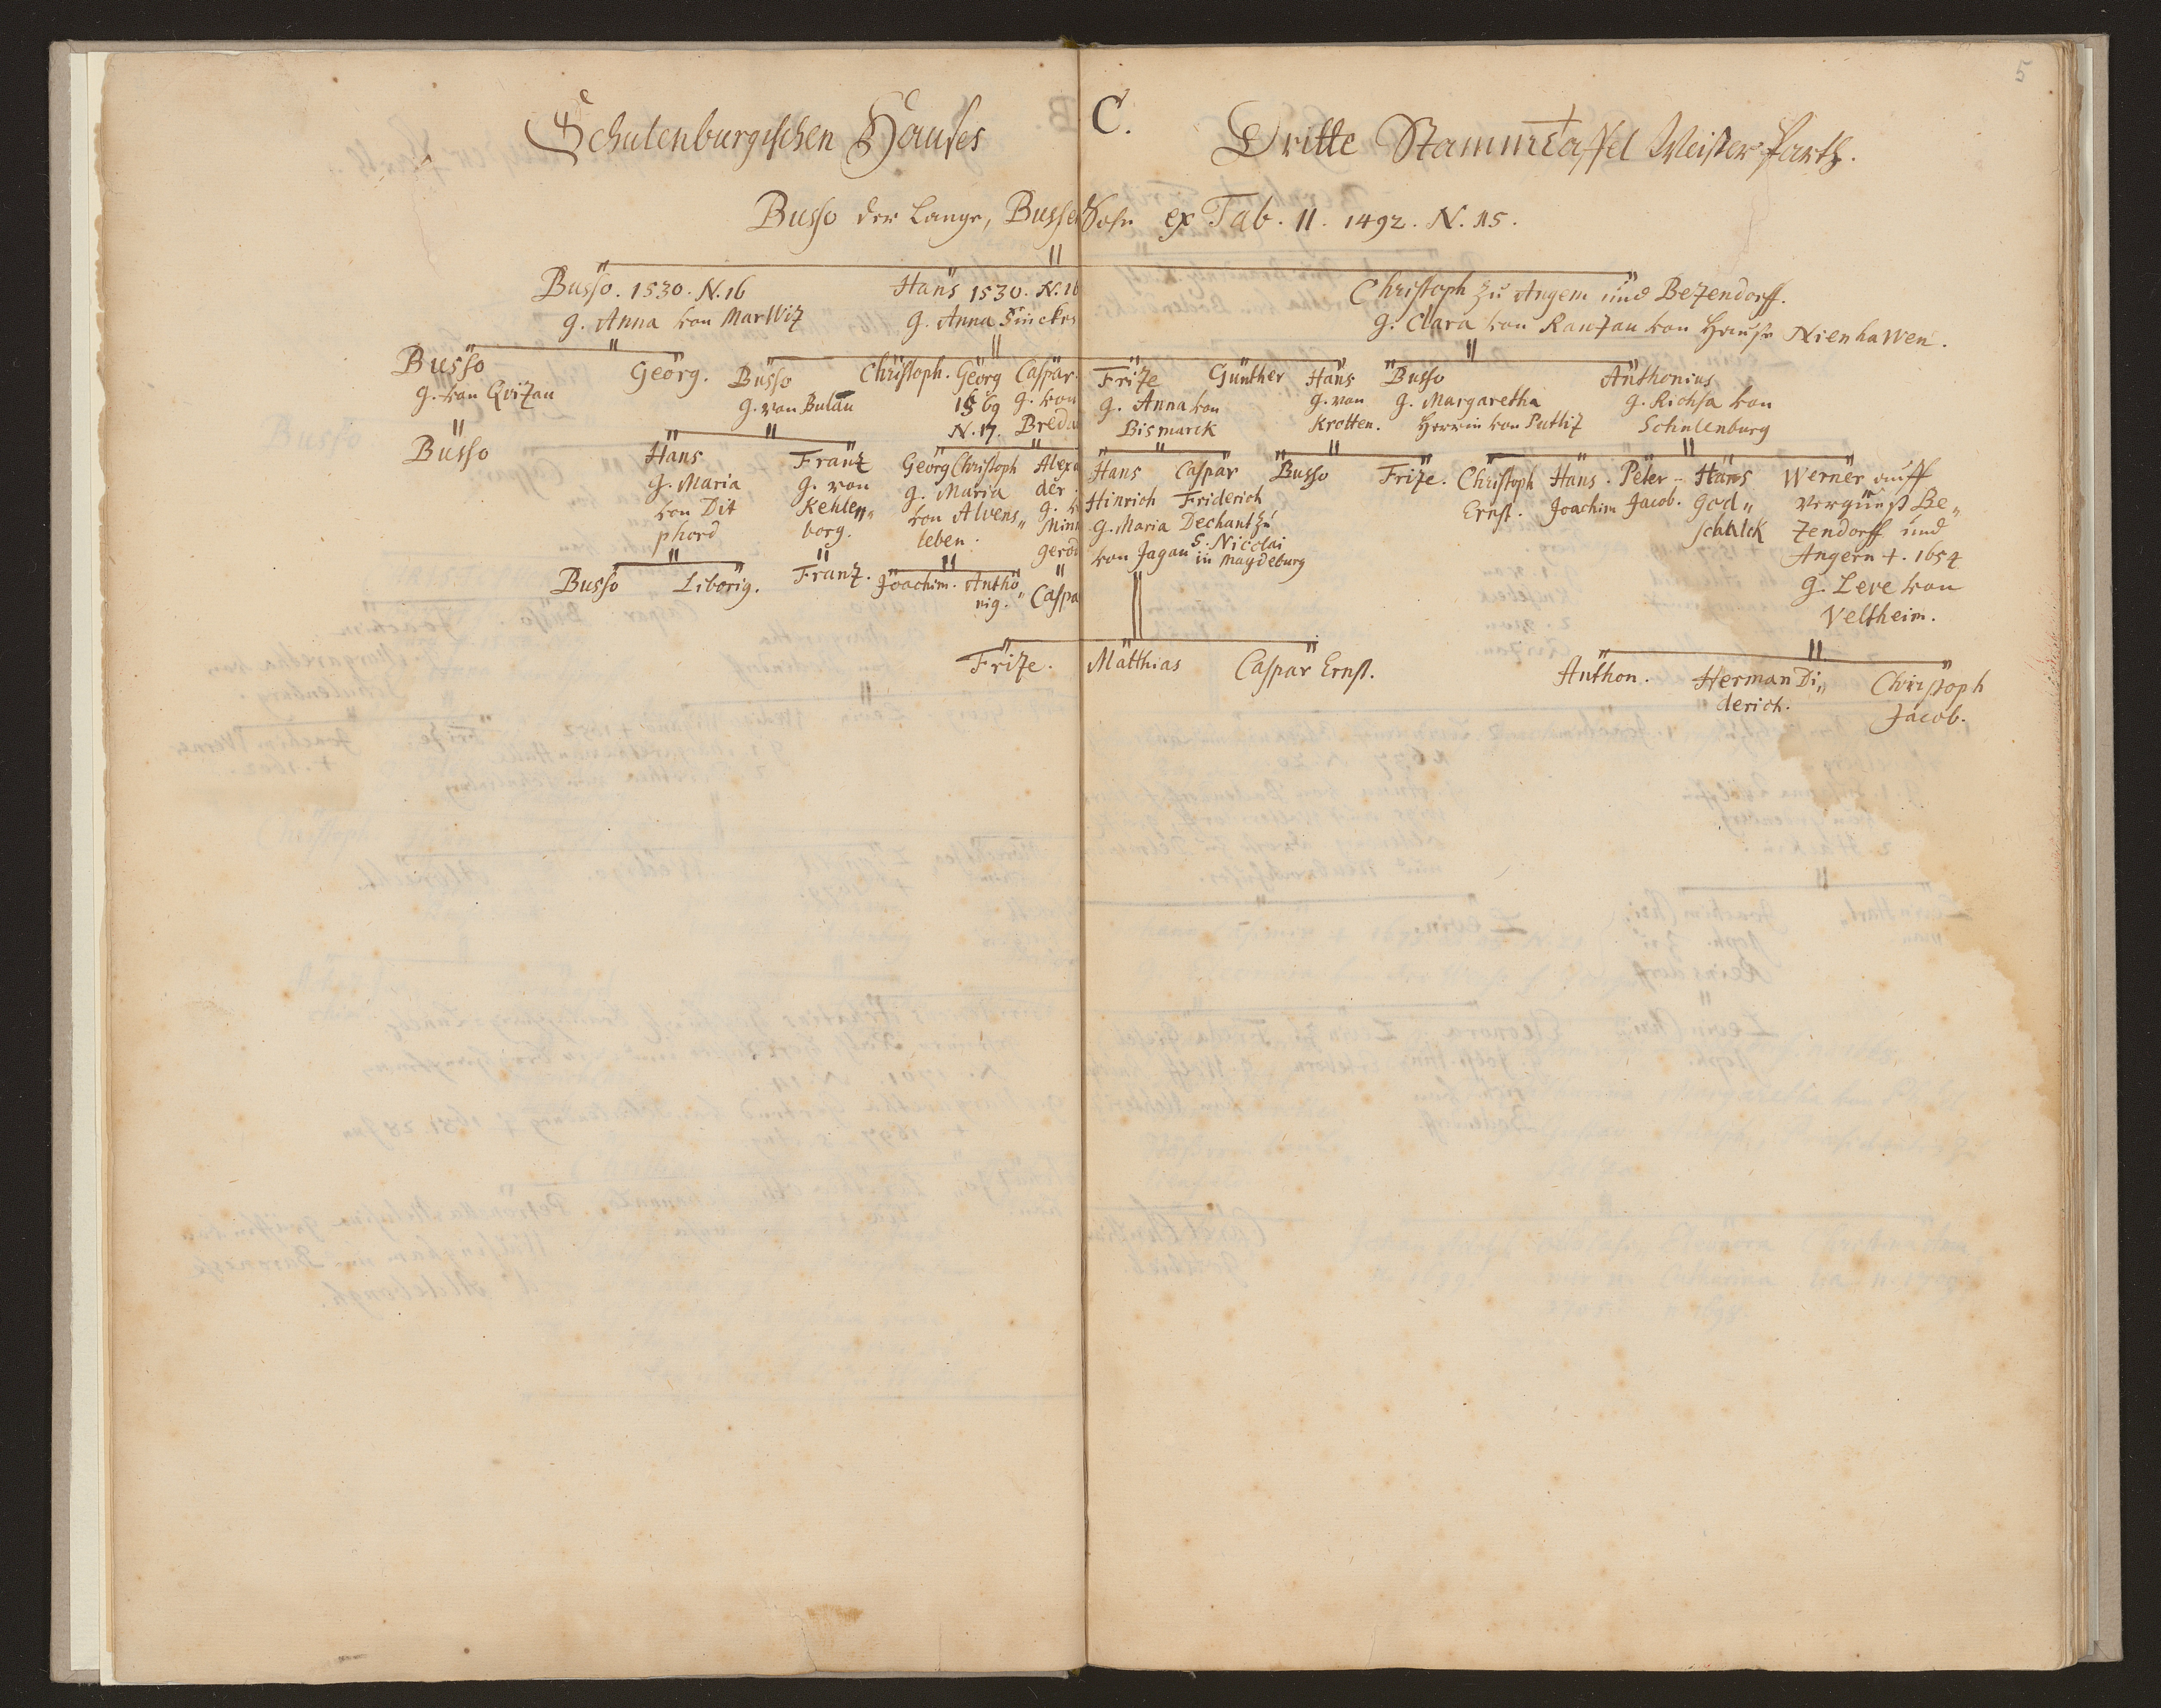 5
Schulenburgischen Hauses C. Dritte Stammtaffel Weißer Parth.
Busso der Lange, Busse Sohn ex Tab. II. 1492. N. 15.
Busso. 1530. N. 16
g. Anna von Marwiz
Hans 1530. N. 16
g. Anna
Christoph zu Angern und Bezendorff.
g. Clara von Ranzau von Hause Nienhawen.
Busso
g. von Qvizau
Georg.
Busso
g. von Bulau
Christoph.
Georg
1569
N. 17.
Caspar.
g. von
Breda
Frize
g. Anna von
Bismarck
Günther
Hans
g. von
Krotten.
Busso
g. Margaretha
Herrin von Putliz
Anthonius
g. Richsa von
Schulenburg
Busso
Hans
g. Maria
von Dit
phord
Franz
g. von
Kehlen„
borg.
Georg Christoph
g. Maria
von Alvens„
leben.
Alexa
der.
g. v
Minn
gerod
Hans
Hinrich
g. Maria
von Jagau
Caspar
Friderich
Dechant zu
S. Nicolai
in Magdeburg
Busso
Frize.
Christoph
Ernst.
Hans
Joachim
Peter
Jacob.
Hans
God„
schalck
Werner auff
Be„
zendorff und
Angern +. 1654
g. Lere von
Veltheim.
Busso
Liborig.
Franz.
Joachim.
Antho„
nig.
Caspa
Frize.
Matthias
Caspar Ernst.
Anthon.
Herman Di„
derich.
Christoph
Jacob.